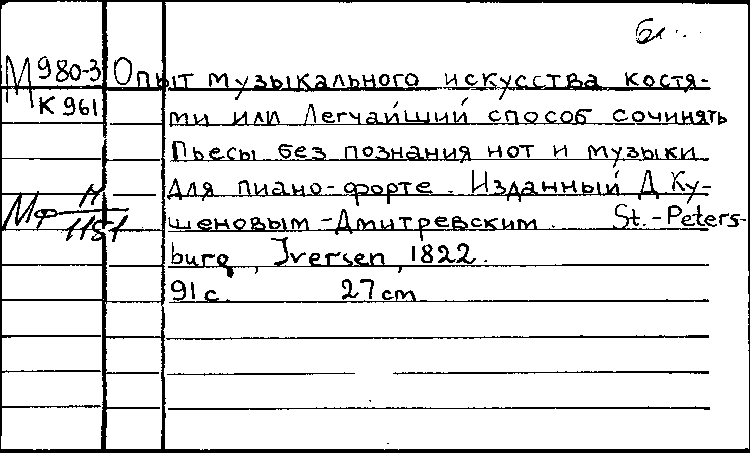 М 980-3 Опыт музыкального искусства костя-
К 961 ми или Легчайший способ сочинять
Пьесы без познания нот и музыки
для пиано-форте. Изданный Д Ку-
Мф Н/1181 шеновым-Дмитревским. St.-Peters-
burg, Iversen, 1822.
91 с. 27 cm